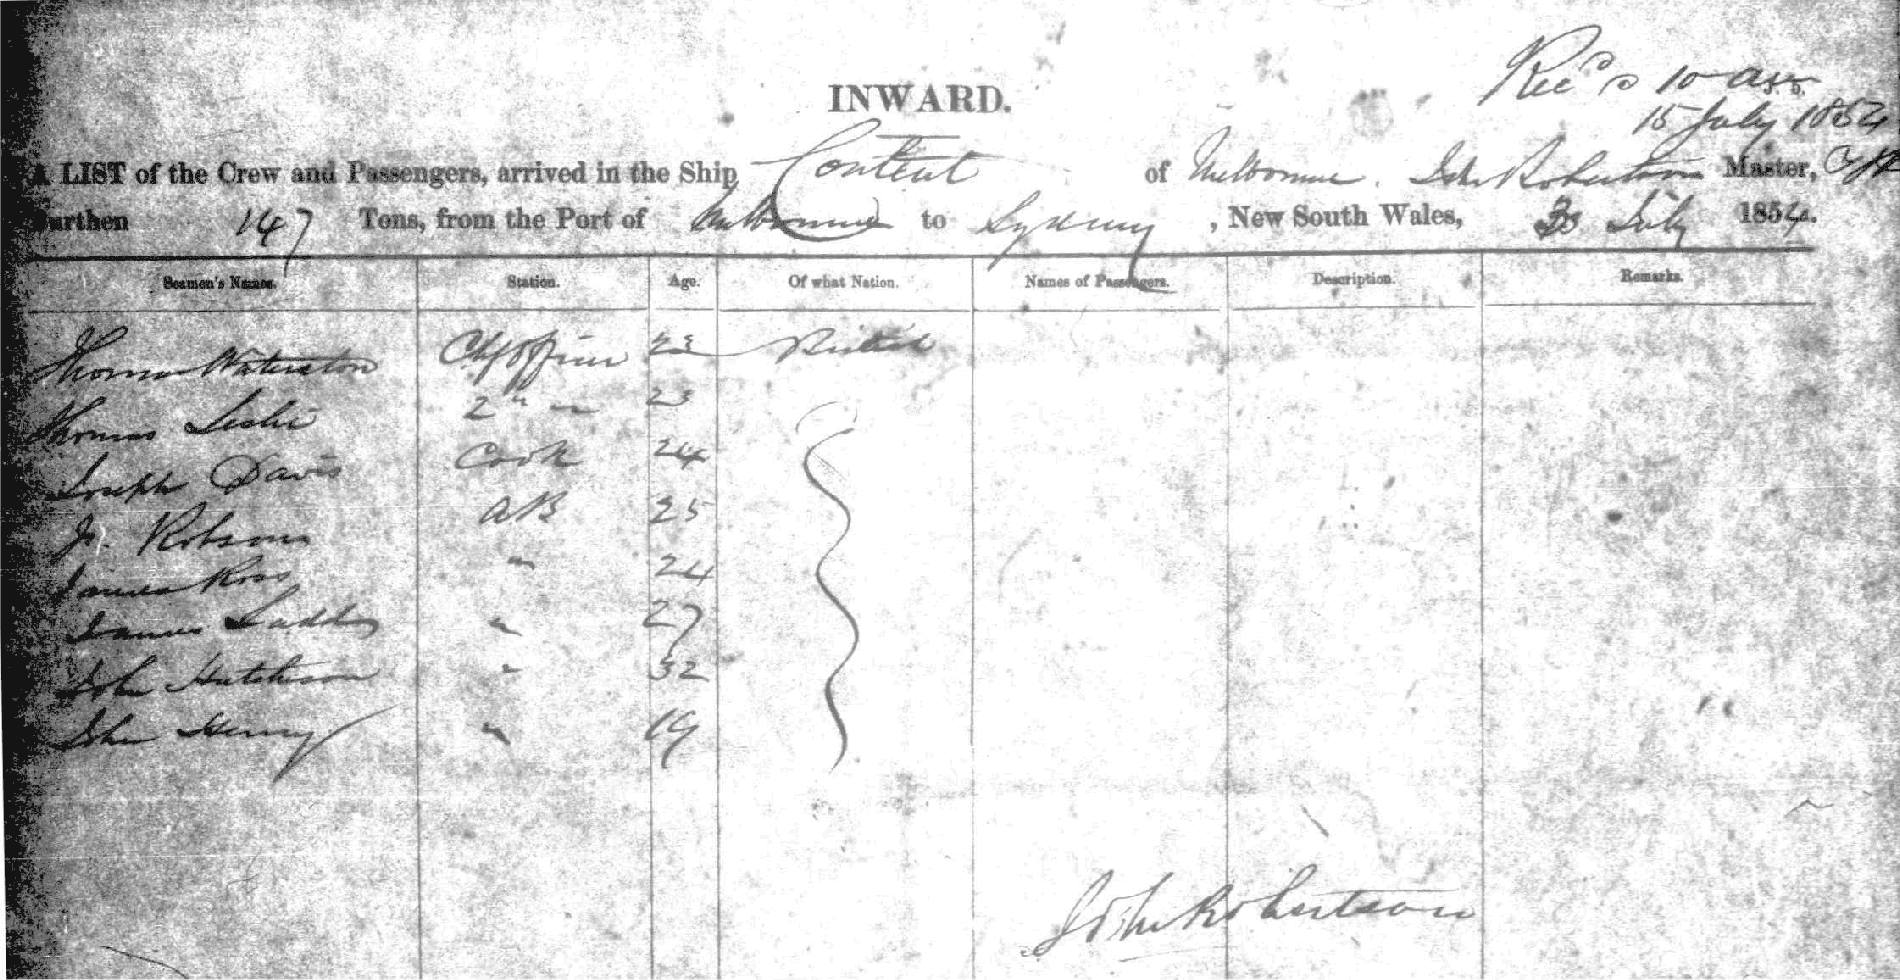 Rec'd 10 am
15 July 1854
INWARD.
A LIST of the Crew and Passengers, arrived in the Ship Content of Melbourne, John Robertson Master,
Burthen 147 Tons, from the Port of Melbourne to Sydney, New South Wales, July 1854.
Seamen's Names. Station. Age. Of what Nation. Names of Passengers. Description. Remarks.
Thomas Waterston Chf Officer 23 British
Thomas Leslie 2nd " 23
Joseph Davis Cook 24
Robson AB 25
James Ross " 24
James Ladds " 27
John Hutchison " 32
John Henry " 19
John Robertson